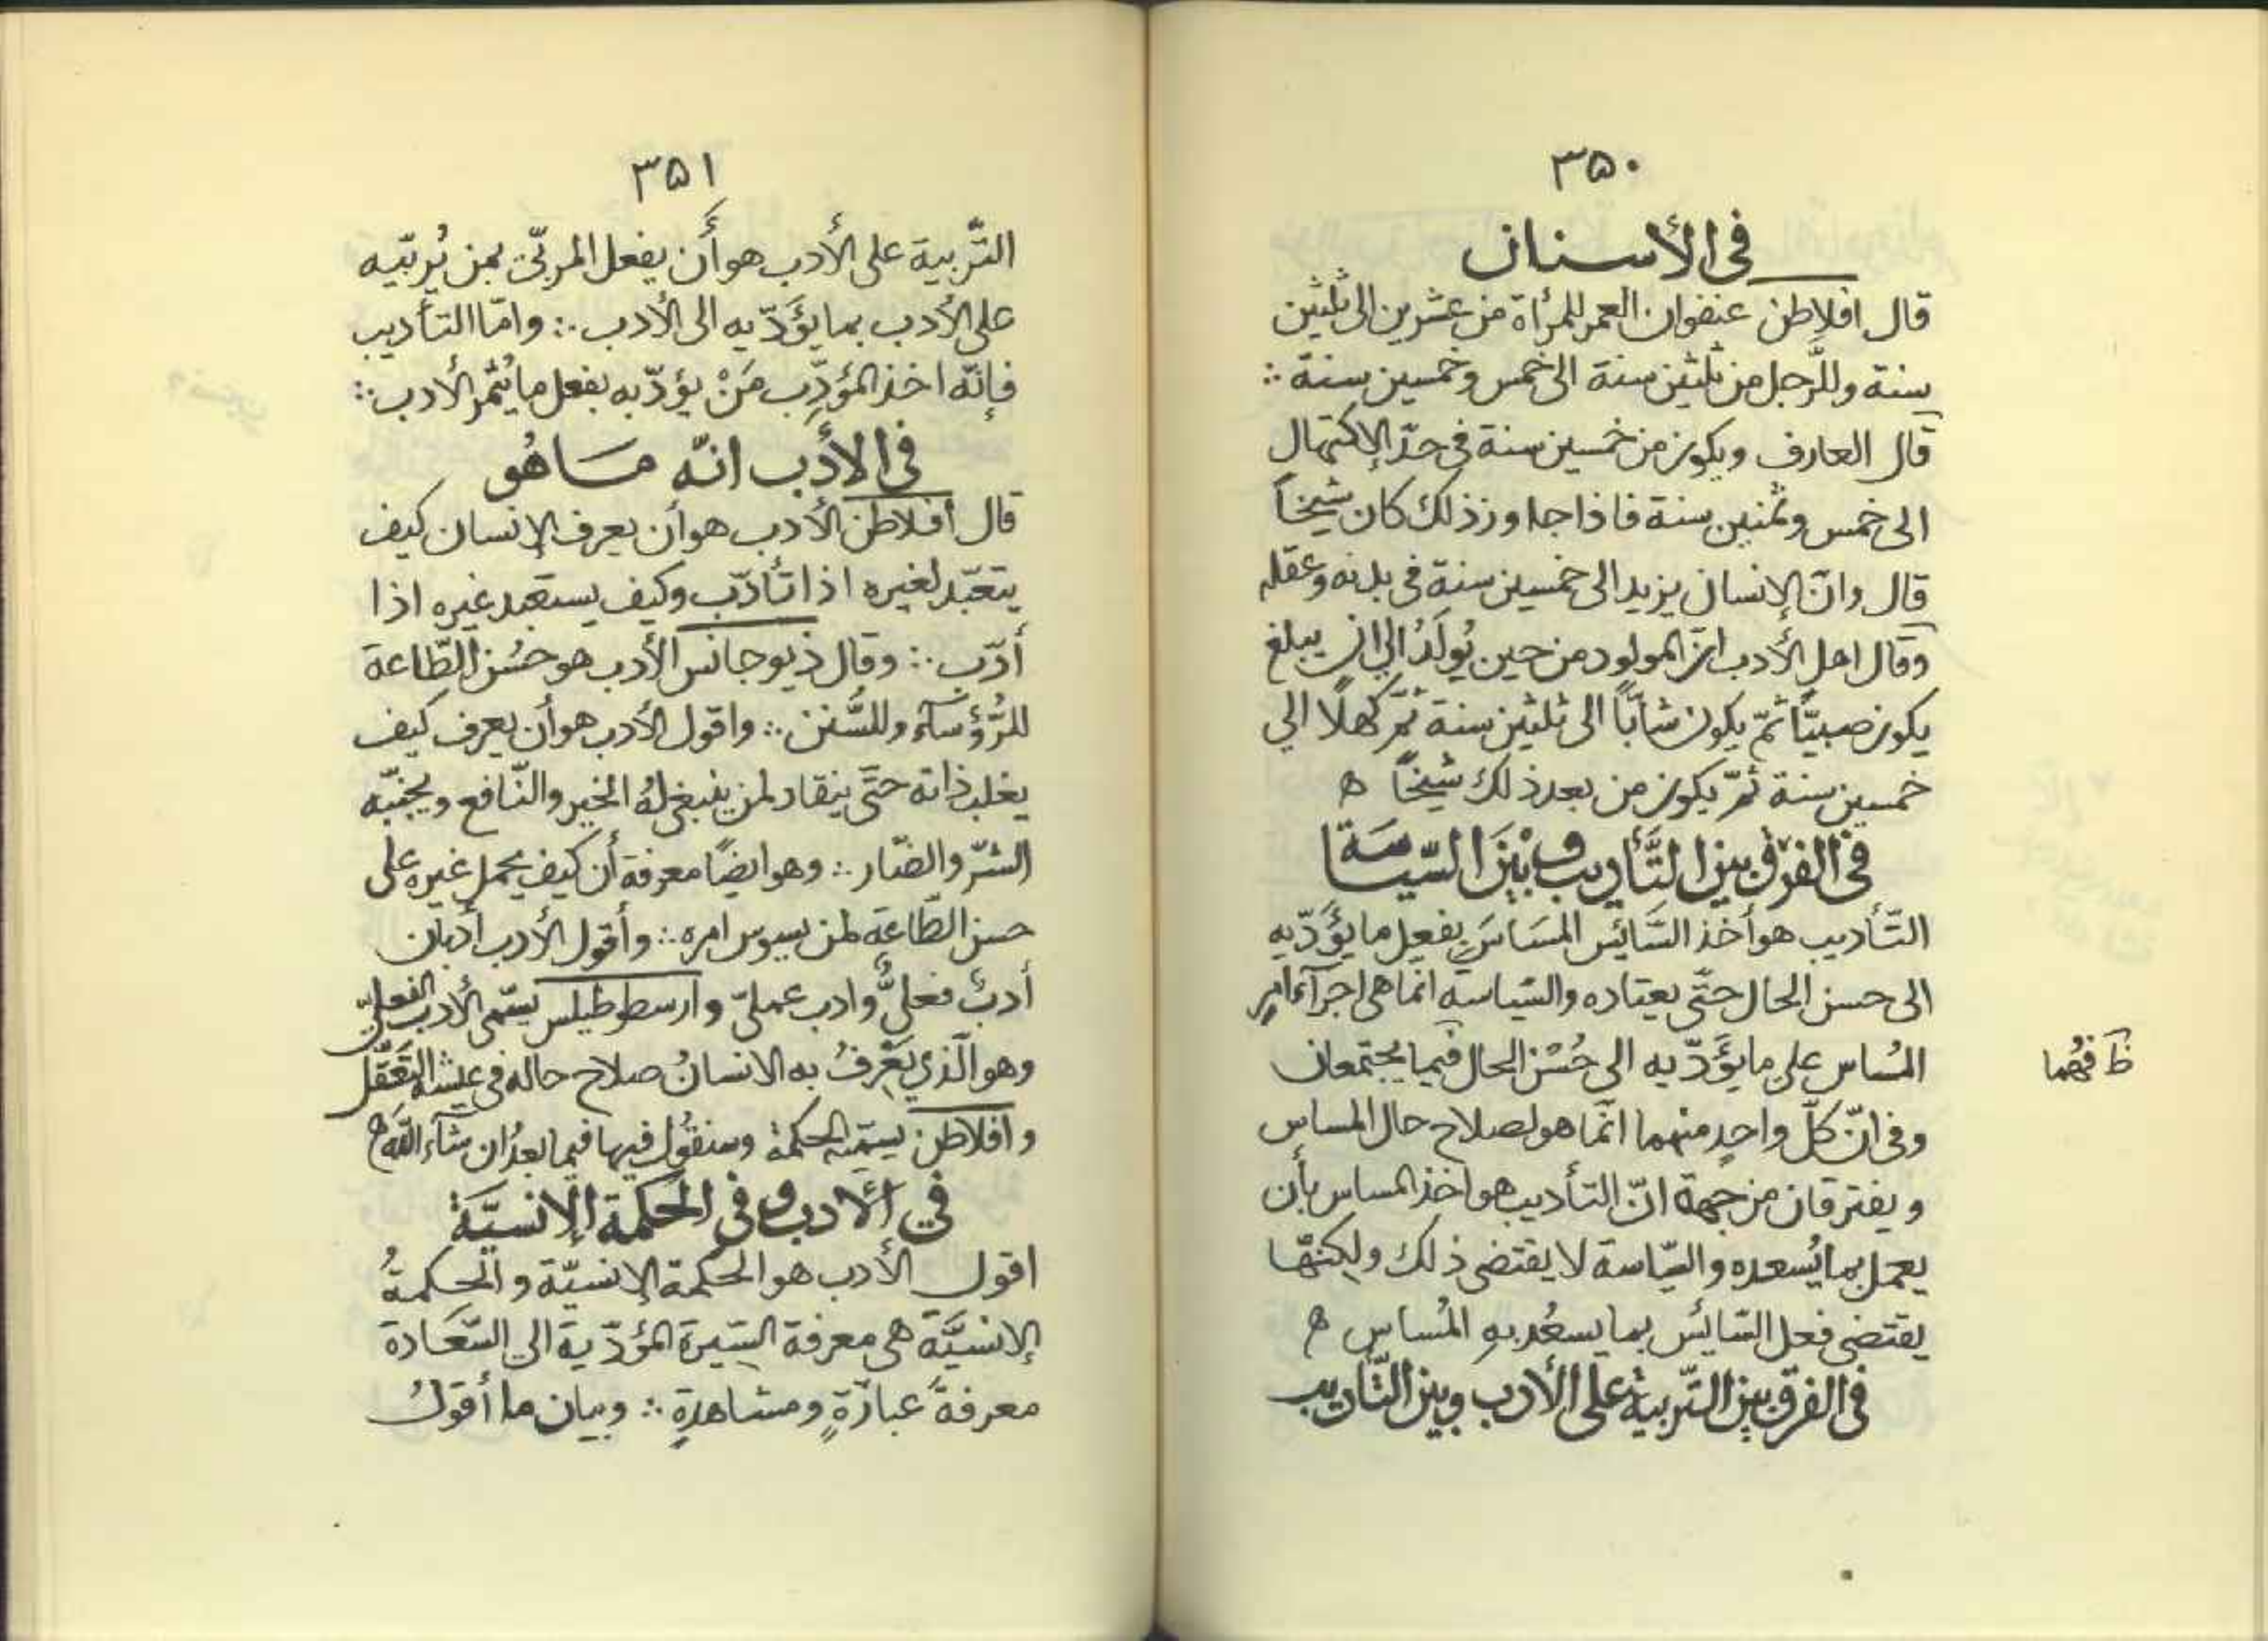 ٣٥٠
فى الأسنان
قال افلاطن عنفوان العمر للمرأة من عشرين الى ثلثين
سنة وللرّجل من ثلثين سنة الى خمس وخمسين سنة ∴
قال العارف ويكون من خمسين سنة فى حدّ الإكتهال
الى خمس وثمنين سنة فاذا جاوز ذلك كان شيخًا
قال وانّ الإنسان يزيد الى خمسين سنة فى بدنه وعقله
وقال اهل الأدب انّ المولود من حين يُولَدُ الى ان يبلغ
يكون صبيّاً ثمّ يكون شابّاً الى ثلثين سنة ثمّ كهلًا الى
خمسين سنة ثمّ يكون من بعد ذلك شيخًا ه
فى الفرق بين التَّأديب وبَيْنَ السّياسَة
التّأديب هو أخذ السَّائِس المسَاسَ بفعل ما يؤَدّيه
الى حسن الحال حتّى يعتاده والسّياسة انّما هى اجرآء امر
المُساس على ما يؤَدّيه الى حُسْن الحال فيما يجتمعان
ظ فهُما
وفى انّ كلّ واحدٍ منهما انّما هو لصلاح حال المساس
ويفترقان من جهة انّ التأديب هو اخذ المساس بأن
يعمل بما يُسعده والسّياسة لا يقتضى ذلك ولكنّها
يقتضى فعل السّائس بما يسعُد به المُساس ه
فى الفرق بين التّربية على الأدب وبين التّأديب
٣٥١
التّربية على الأدب هو أَن يفعل المربّى بمن يُربّيه
على الأدب بما يؤَدّيه الى الأدب ∴ وامّا التأديب
فإنّه اخذ المؤدِّب مَنْ يؤدّبه بفعل ما يُثمر الأدب ∴
فى الأدب انّه مَا هُو
قال أفلاطن الأدب هو أن يعرف الإنسان كيف
يتعبّد لغيره اذا تأدّب وكيف يستعبد غيره اذا
أدّب ∴ وقال ذيوجانس الأدب هو حُسْن الطّاعة
للرُّؤسآء وللسُّنن ∴ واقول الأدب هو أن يعرف كيف
يغلب ذاته حتَّى ينقاد لمن ينبغى لهُ الخير والنّافع ويجنّبه
الشرّ والضّار ∴ وهو ايضًا معرفة أن كيف يحمل غيره على
حسن الطّاعة لمن يسوس امره ∴ وأقول الأدب أدبان
أدبٌ فعلىٌّ وادب عملىّ وارسطوطيلس يسمّى الأدب الفعلىّ
وهو الّذي يَعْرِفُ به الانسانُ صلاح حاله فى عيشه التعَقّل
وافلاطن يسمّيه الحكمة وسنقُول فيها فيما بعدُ ان شآء اللّه ه
فى الأدب وفى الحكمة الإنسيَّة
اقول الأدب هو الحكمة الإنسيّة والحكمةُ
الإنسيَّة هى معرفة السّيرة المؤدّية الى السّعَادة
معرفةً عبارةٍ ومشاهدةٍ ∴ وبيان ما أقولُ